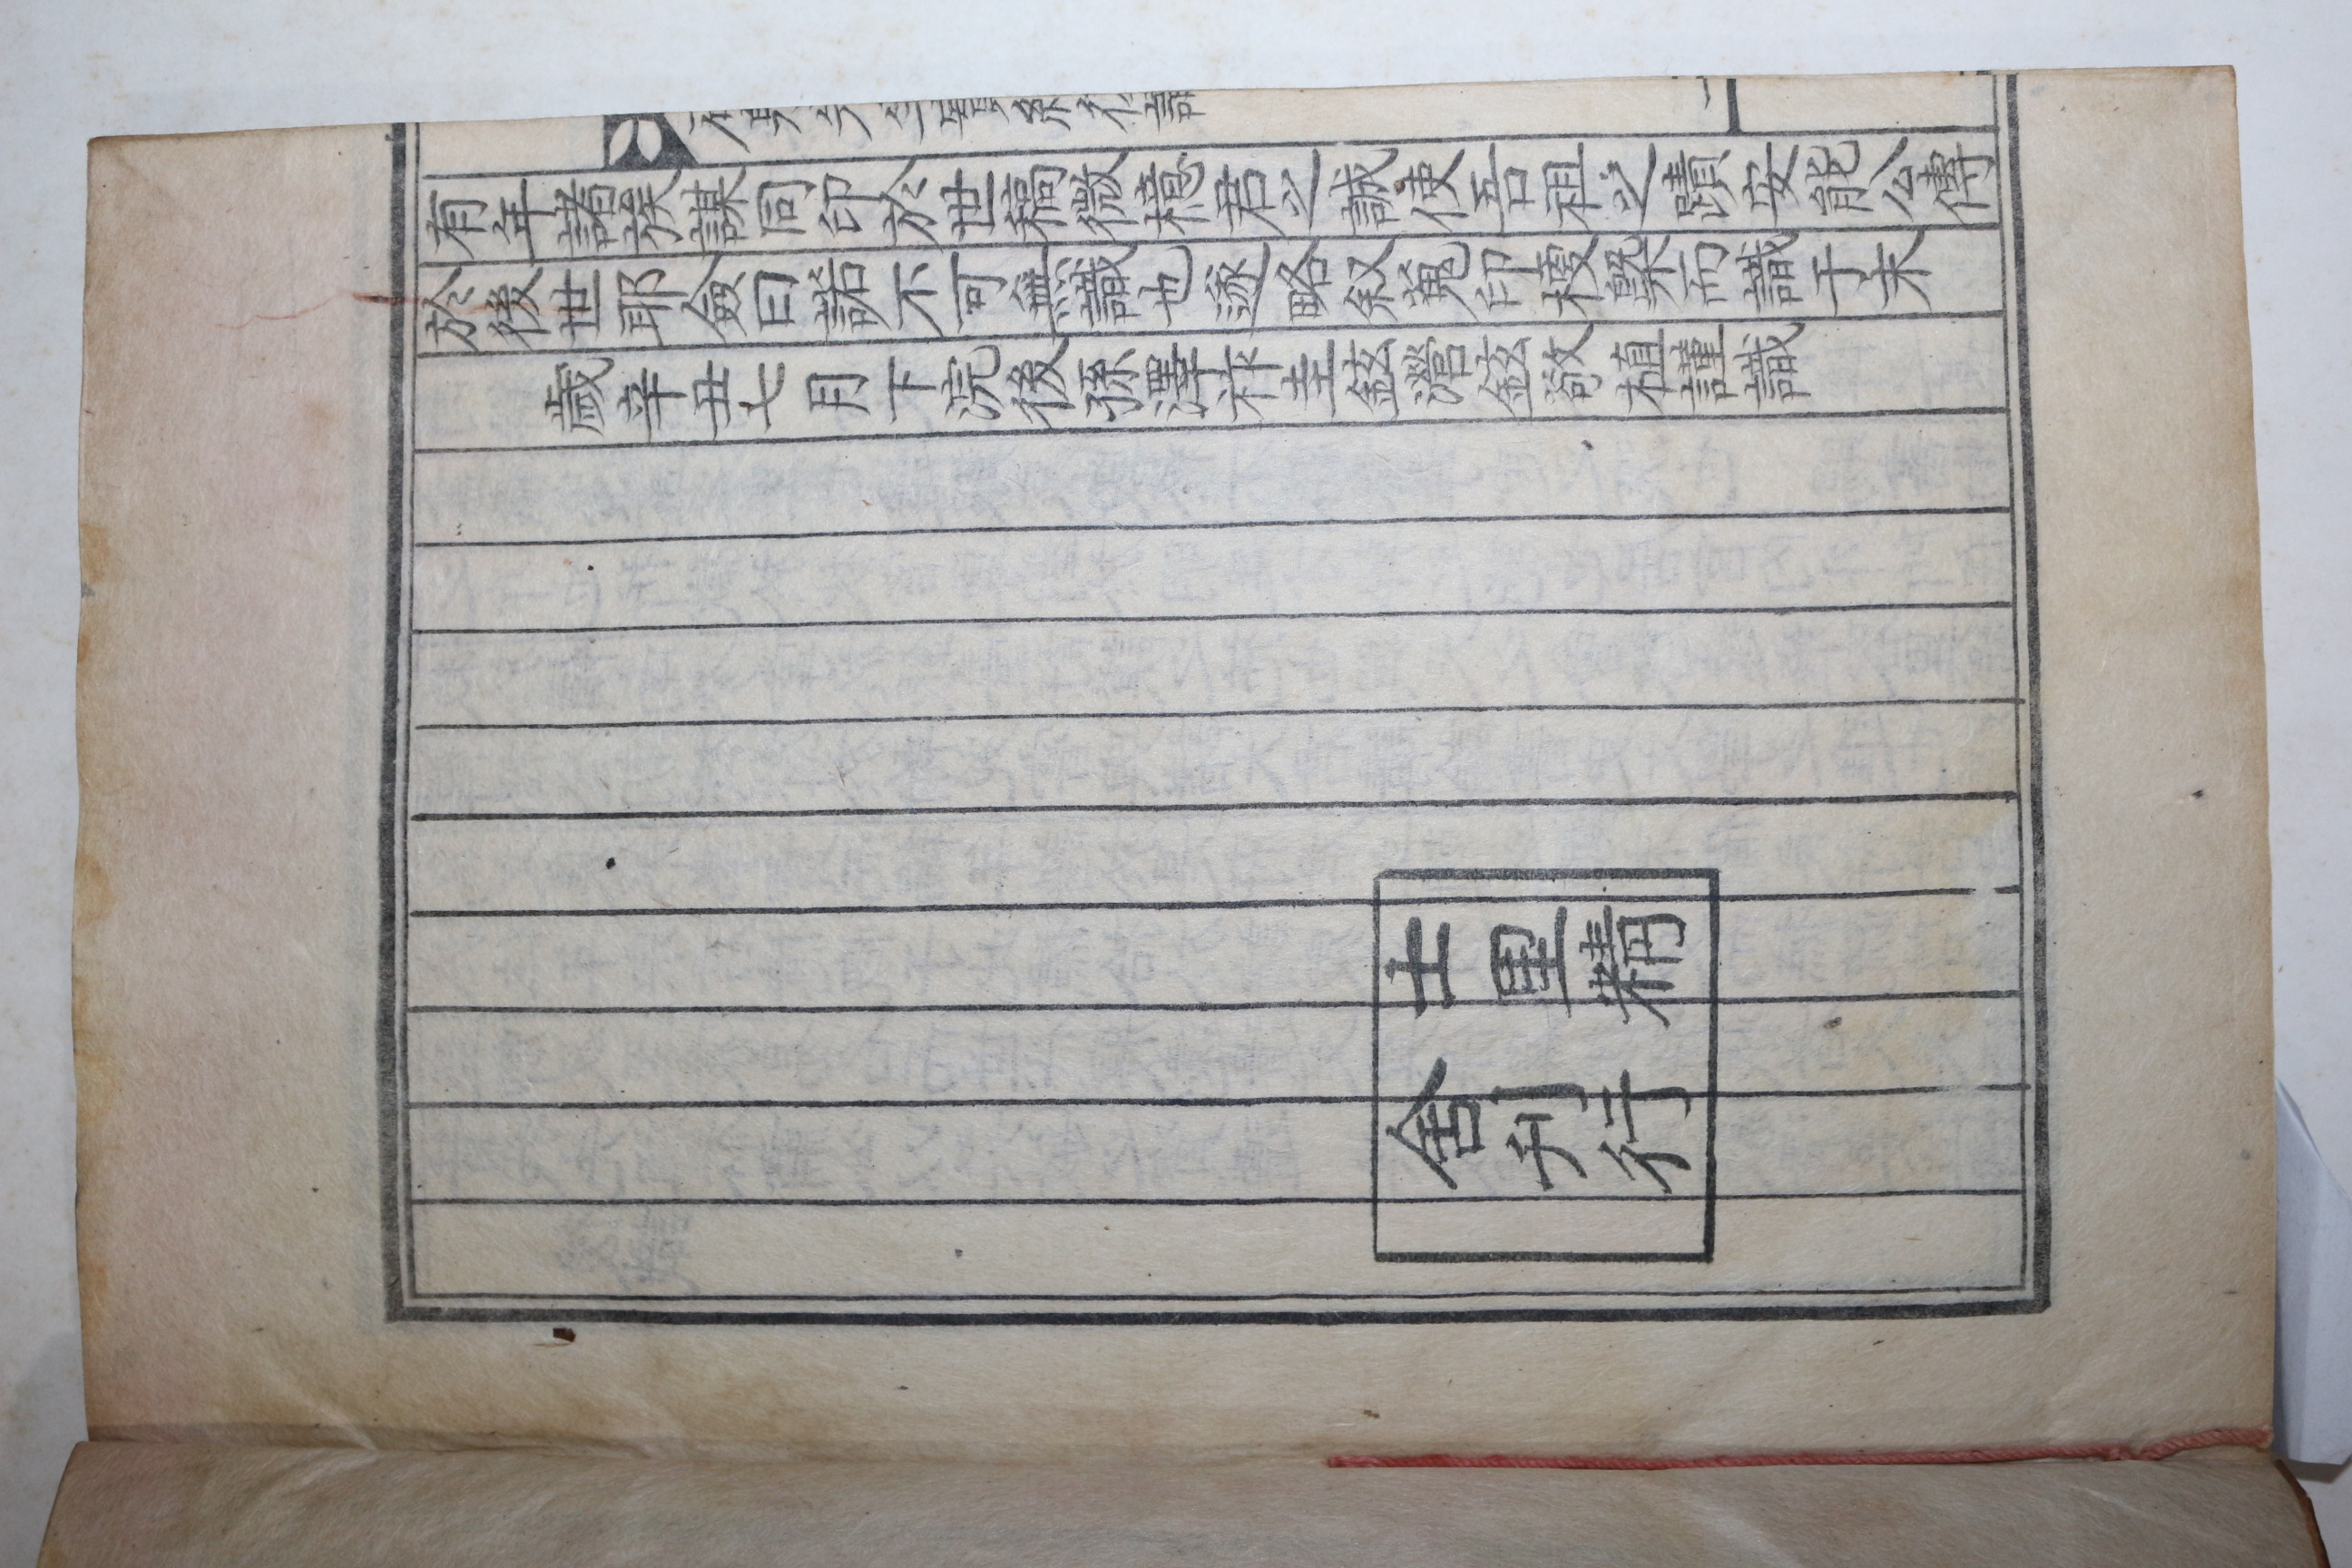 先生實紀後識
有年諸族謀同印於世稿微檍君之誠使吾祖之蹟安能公傳
於後世耶僉曰諾不可無識也遂略叙蒐印梭槩而識于末
歲辛丑七月下浣後孫澤祚圭鉉瀯鉉敬植謹識
士里精
舍刊行